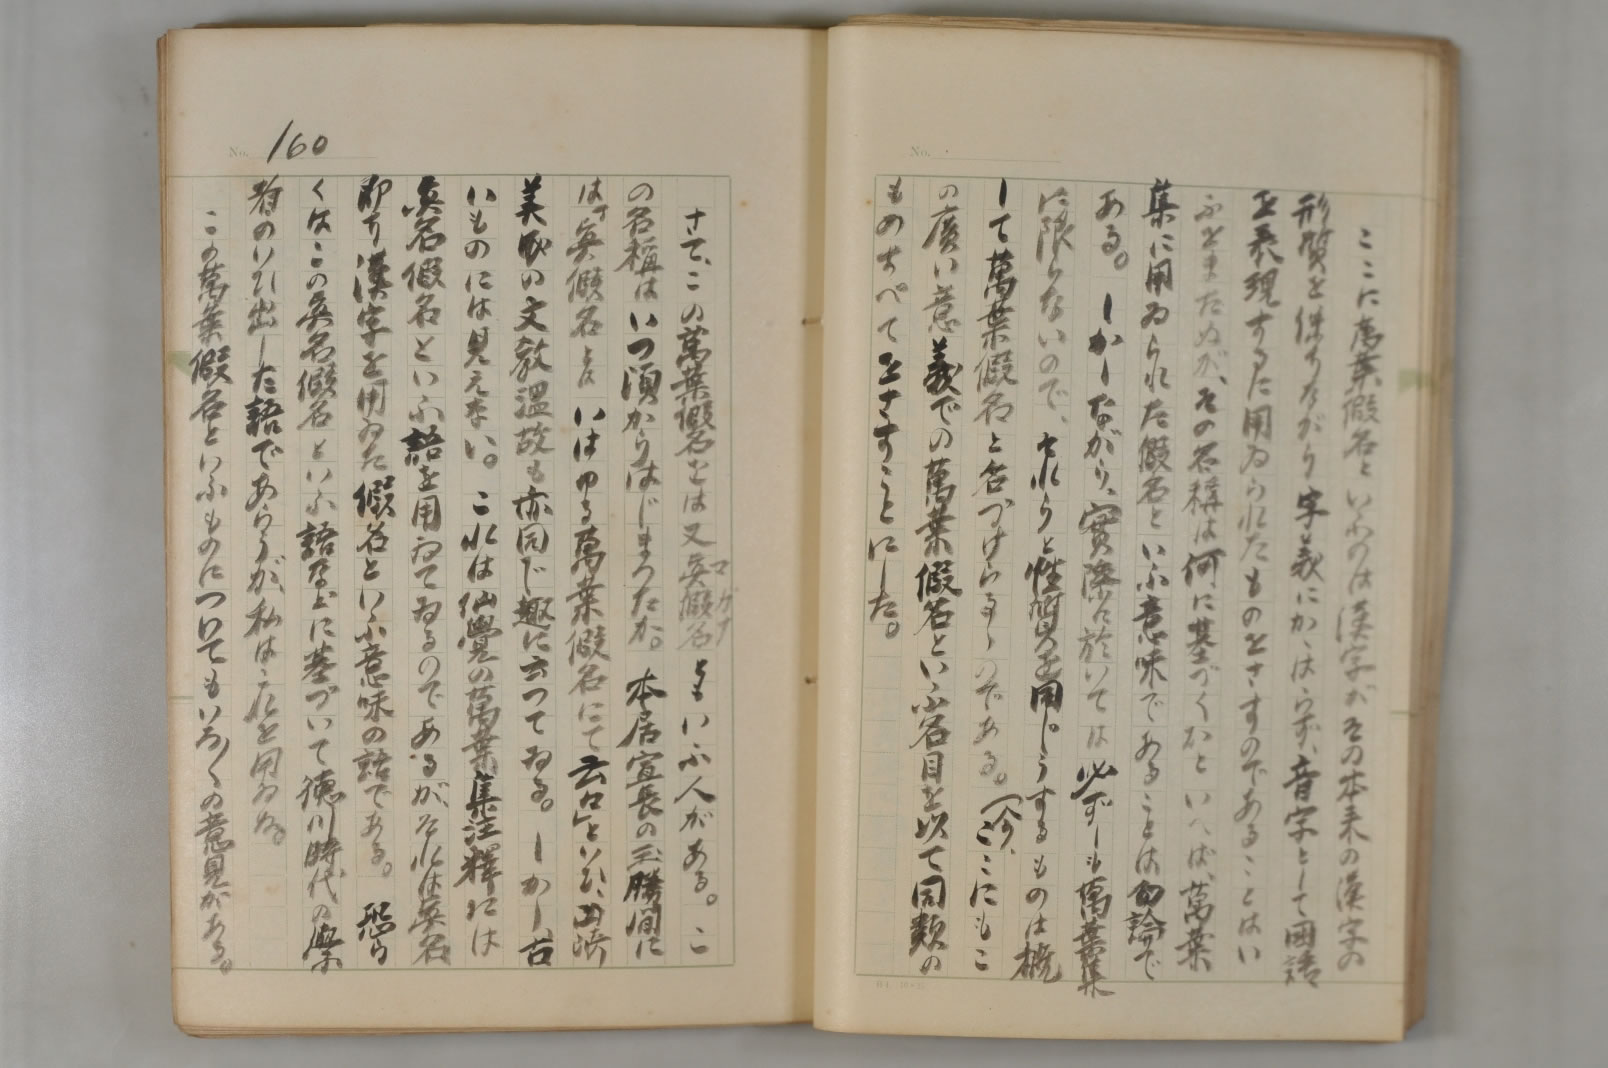 ここに萬葉假名といふのは漢字がその本来の漢字の
形質を保ちながら字義にかゝはらず、音字として國語
を表現するに用ゐられたものをさすのであることはい
ふをまたぬが、その名稱は何に基づくかといへば、萬葉
集に用ゐられた假名といふ意味であることは勿論で
ある。しかしながら、實際に於いては必ずしも萬葉集
に限らないので、それらと性質を同じうするものは概
して萬葉假名と名づけらるゝのである。今、ここにもこ
の廣い意義での萬葉假名といふ名目を以て同類の
ものすべてをさすことにした。
No. 160
さて、この萬葉假名をは又眞假名マガナともいふ人がある。こ
の名稱はいつ頃からはじまつたか。本居宣長の玉勝間に
は「眞假名とは いはゆる萬葉假名にて云々」といひ、山崎
美成の文教温故も亦同じ趣に云つてゐる。しかし、古
いものには見えない。これは仙覺の萬葉集注釋には
眞名假名といふ語を用ゐてゐるのであるが、それは眞名
即ち漢字を用ゐた假名といふ意味の語である。恐ら
くはこの眞名假名といふ語などに基づいて徳川時代の學
者のいひ出した語であらうが、私は之を用ゐぬ。
この萬葉假名といふものについてもいろ〳〵の意見がある。
No.